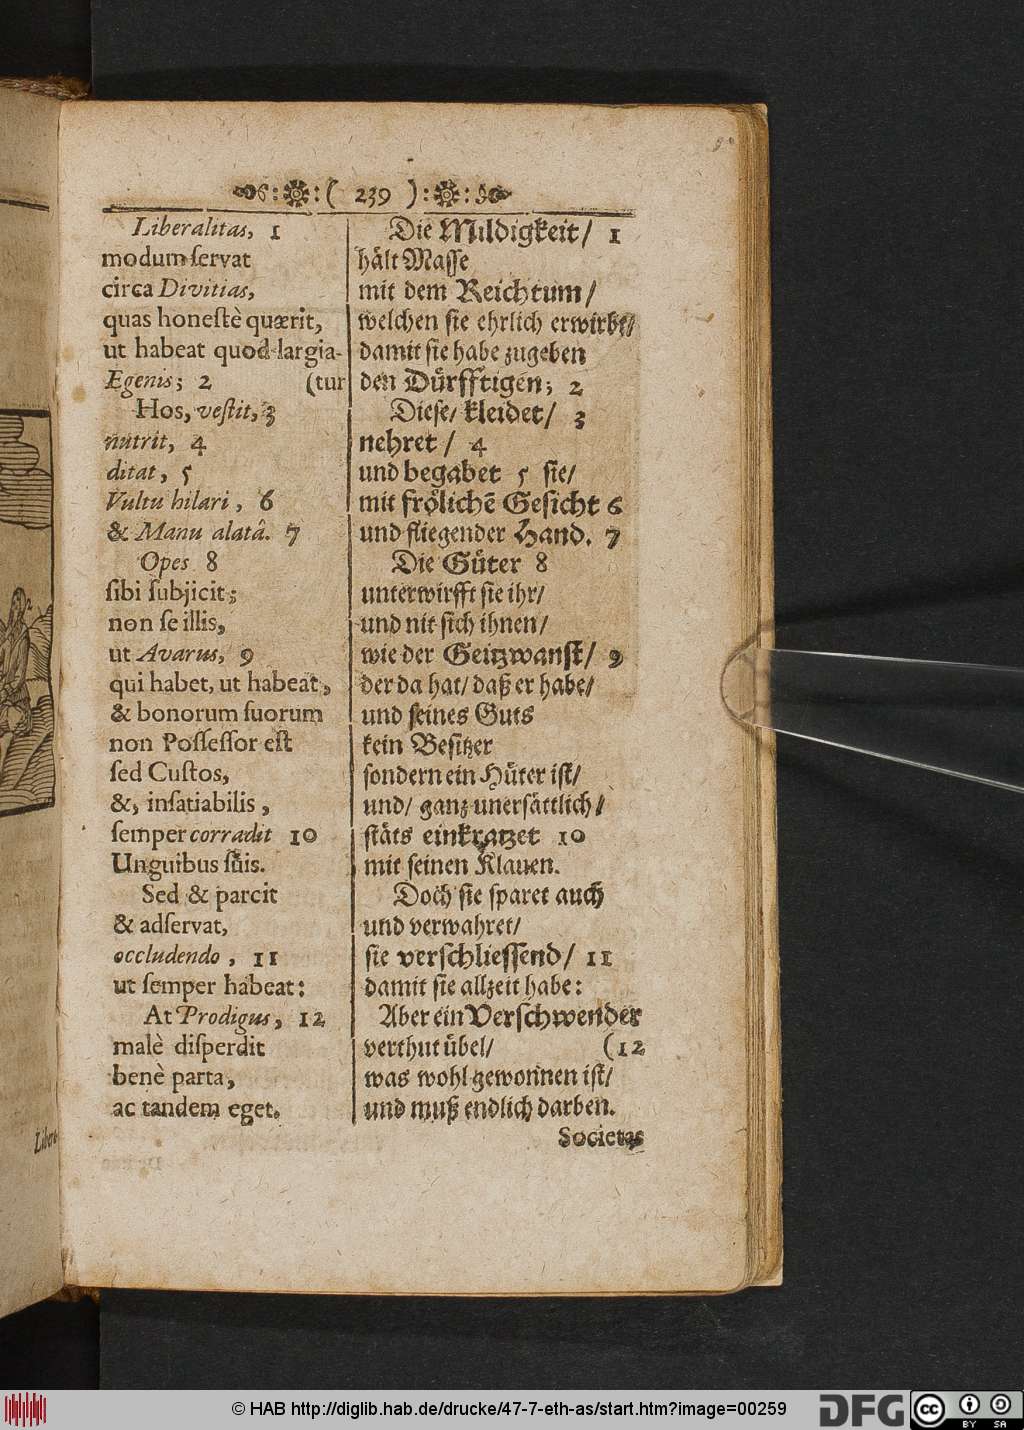 ( 239 )
Liberalitas, 1
modum ſervat
circa Divitias,
quas honeſtè quærit,
ut habeat quod largia-
Egenis; 2 (tur
Hos, veſtit, 3
nutrit, 4
ditat, 5
Vultu hilari, 6
& Manu alatâ. 7
Opes 8
ſibi ſubjicit;
non ſe illis,
ut Avarus, 9
qui habet, ut habeat,
& bonorum ſuorum
non Poſſeſſor eſt
ſed Cuſtos,
&, inſatiabilis,
ſemper corradit 10
Unguibus ſuis.
Sed & parcit
& adſervat,
occludendo, 11
ut ſemper habeat:
At Prodigus, 12
malè diſperdit
benè parta,
ac tandem eget.
Die Mildigkeit/ 1
hält Maſſe
mit dem Reichtum/
welchen ſie ehrlich erwirbt/
damit ſie habe zugeben
den Dürfftigen; 2
Dieſe/ kleidet/ 3
nehret/ 4
und begabet 5 ſie/
mit frölichẽ Geſicht 6
und fliegender Hand. 7
Die Güter 8
unterwirfft ſie ihr/
und nit ſich ihnen/
wie der Geitzwanſt/ 9
der da hat/ daß er habe/
und ſeines Guts
kein Beſitzer
ſondern ein Hüter iſt/
und/ ganz unerſättlich/
ſtäts einkratzet 10
mit ſeinen Klauen.
Doch ſie ſparet auch
und verwahret/
ſie verſchlieſſend/ 11
damit ſie allzeit habe:
Aber ein Verſchwender
verthut übel/ (12
was wohl gewonnen iſt/
und muß endlich darben.
Societas
© HAB http://diglib.hab.de/drucke/47-7-eth-as/start.htm?image=00259
DFG
cc BY SA